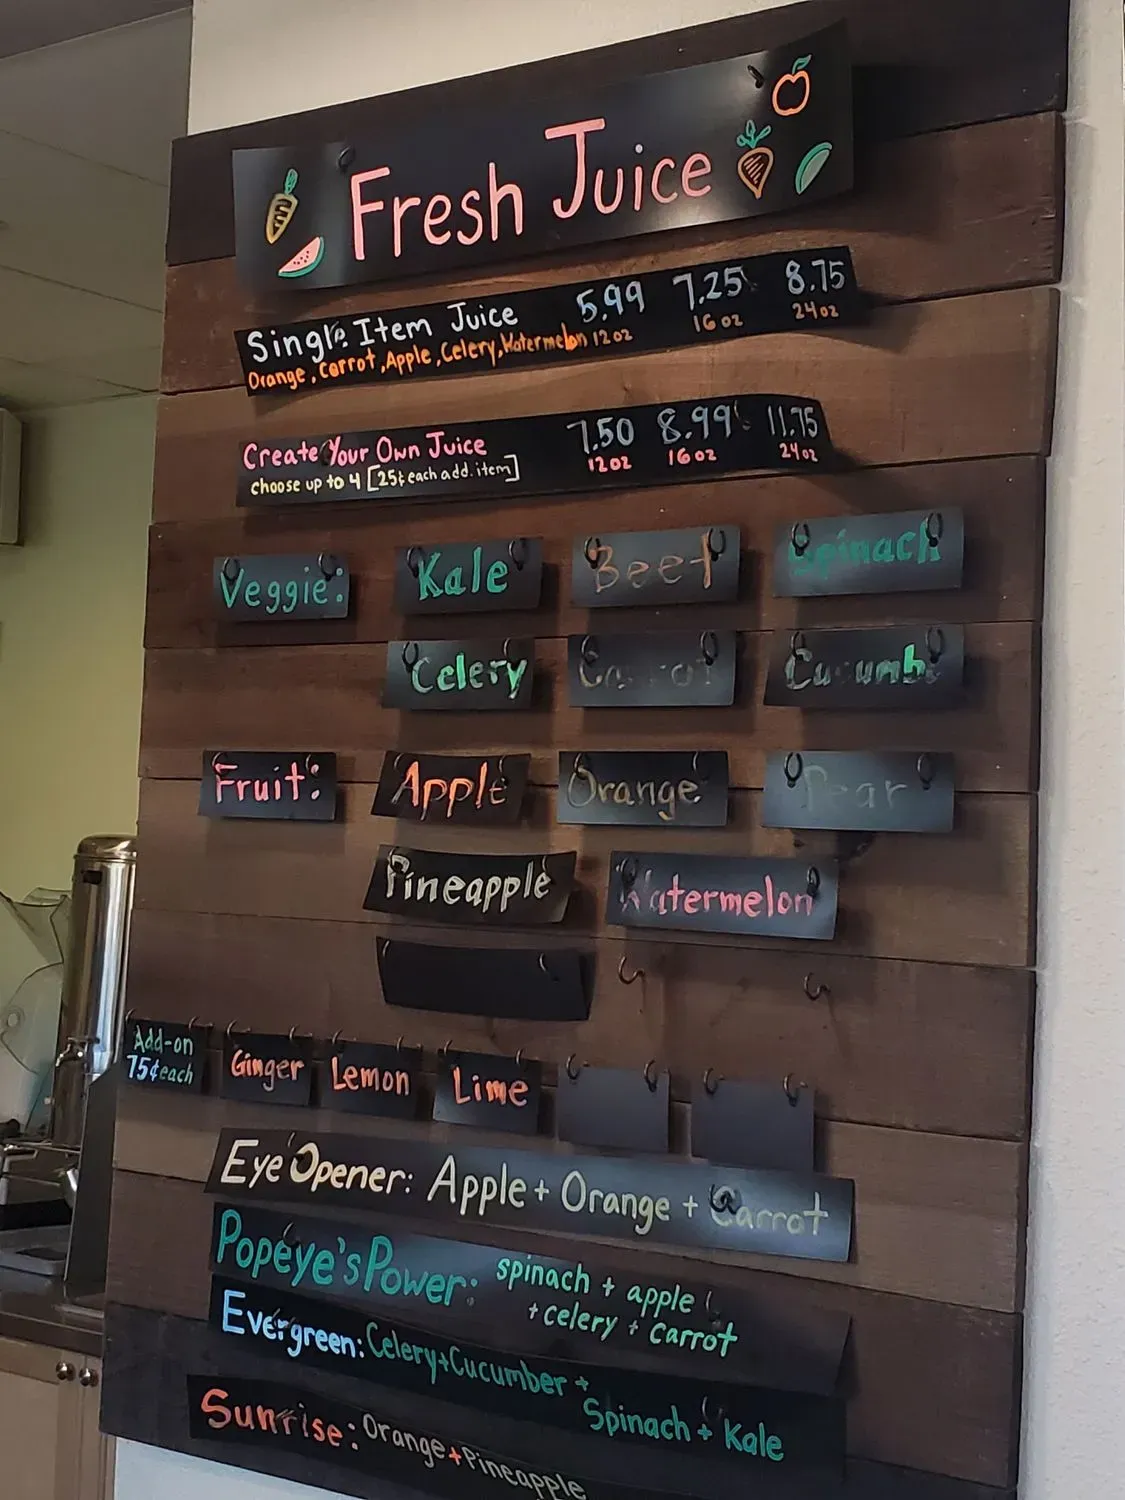 Fresh Juice
Single Item Juice 5.99 7.25 8.75
Orange, Carrot, Apple, Celery, Watermelon 12oz 16oz 24oz
Create Your Own Juice 7.50 8.99 11.75
choose up to 4 [25¢ each add. item] 12oz 16oz 24oz
Veggie: Kale Beet Spinach
Celery Carrot Cucumb
Fruit: Apple Orange Pear
Pineapple Watermelon
Add-on
75¢ each Ginger Lemon Lime
Eye Opener: Apple + Orange + Carrot
Popeye's Power: spinach + apple
+ celery + carrot
Evergreen: Celery + Cucumber +
Spinach + Kale
Sunrise: Orange + Pineapple